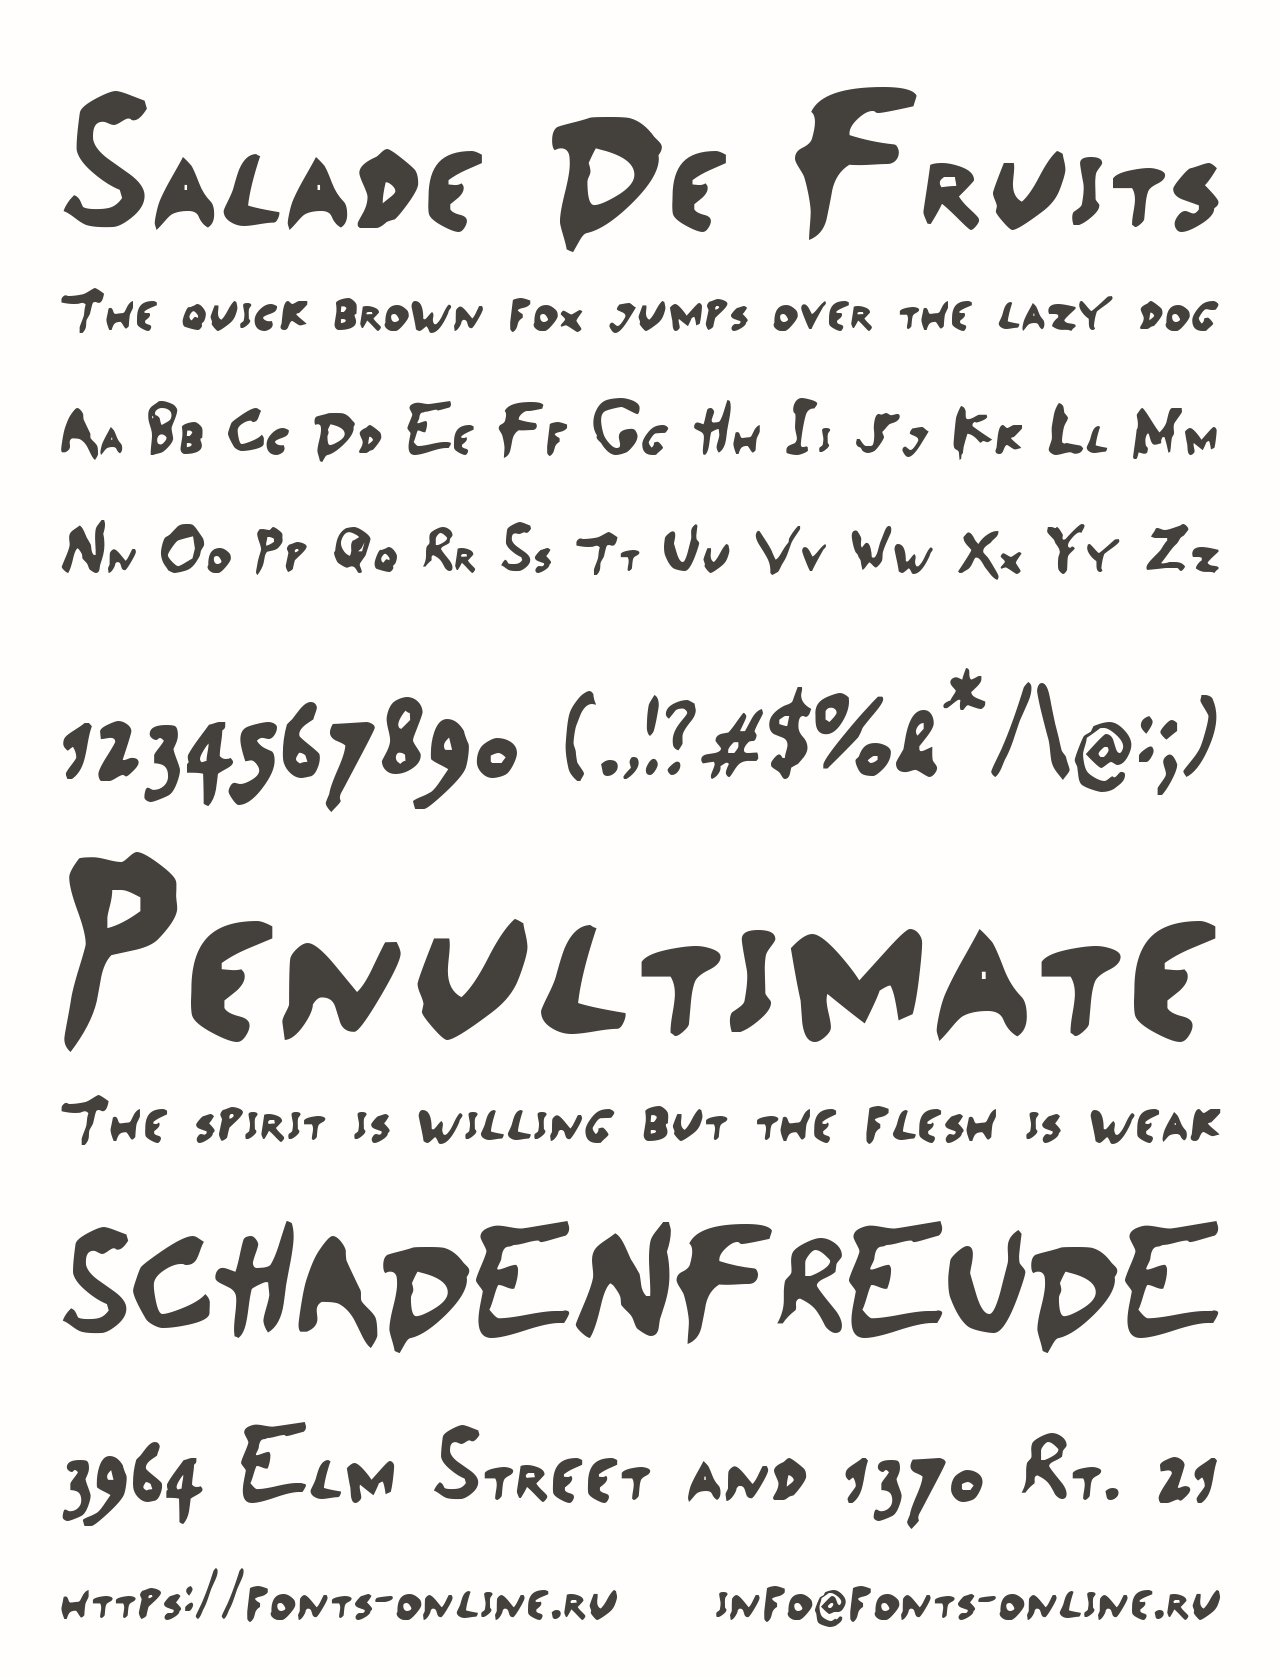 Salade De Fruits
The quick brown fox jumps over the lazy dog
Aa Bb Cc Dd Ee Ff Gg Hh Ii Jj Kk Ll Mm
Nn Oo Pp Qq Rr Ss Tt Uu Vv Ww Xx Yy Zz
1234567890 (.,!?#$%&*/\@:;)
Penultimate
The spirit is willing but the flesh is weak
SCHADENFREUDE
3964 Elm Street and 1370 Rt. 21
https://fonts-online.ru info@fonts-online.ru